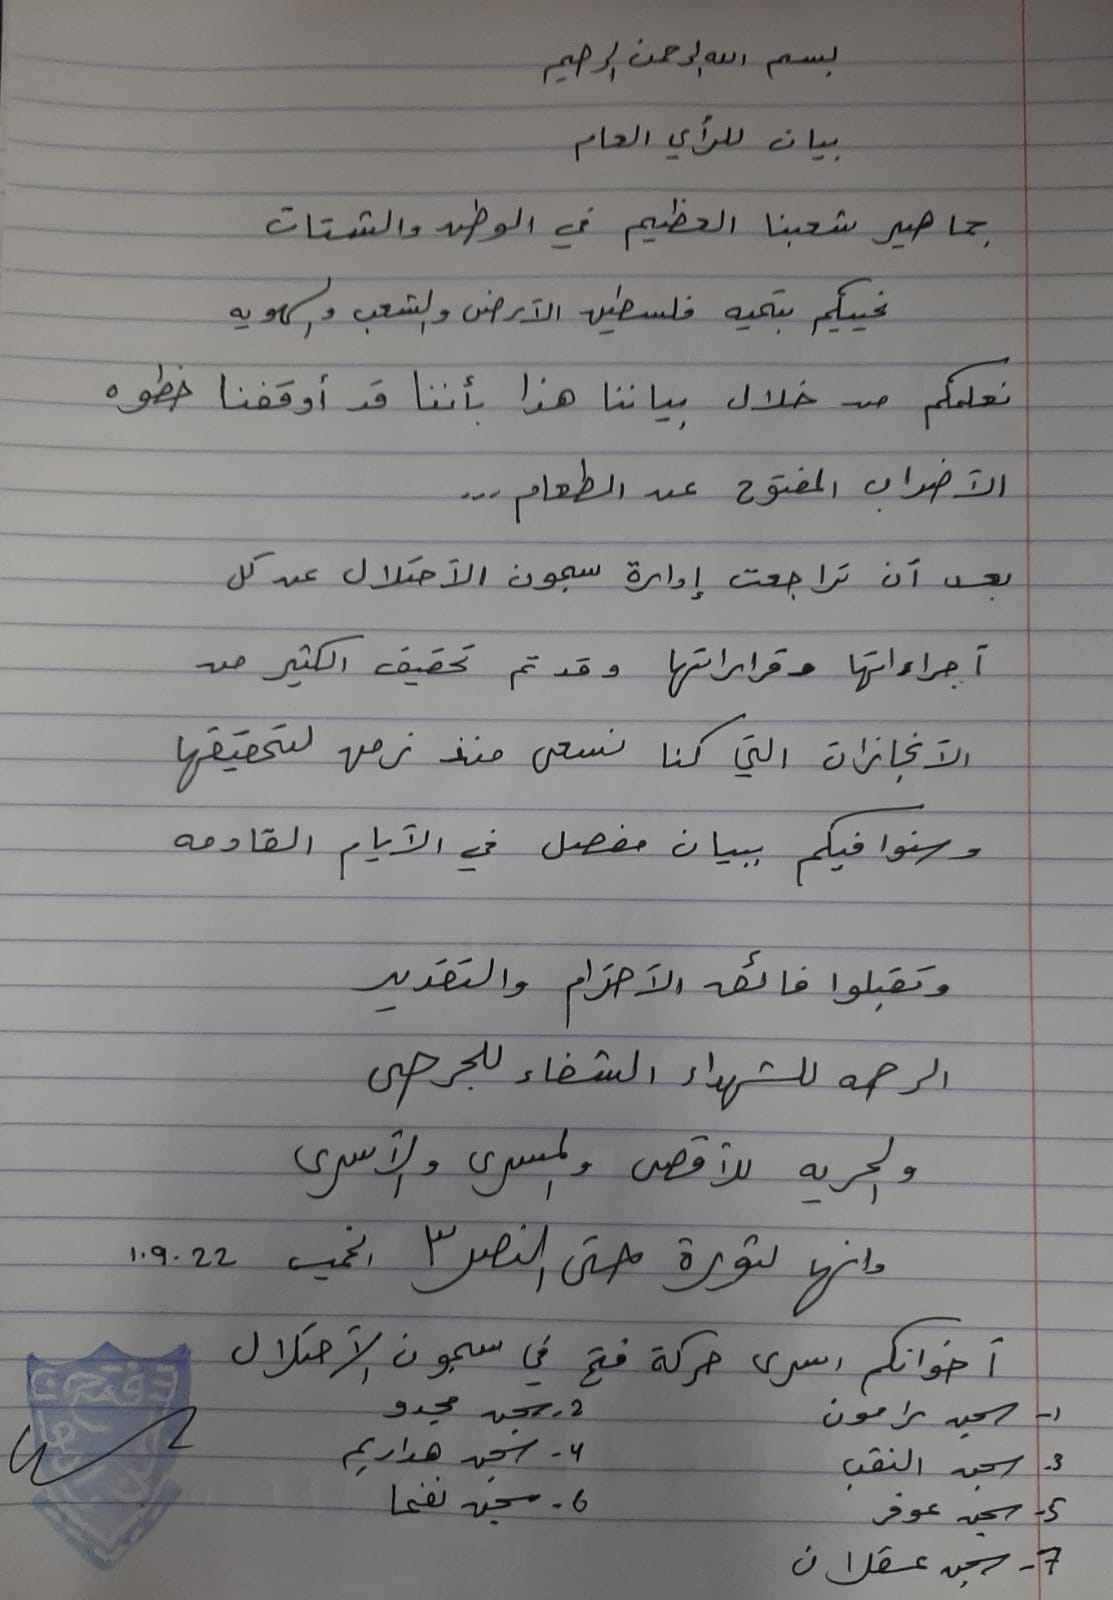 بسم الله الرحمن الرحيم
بيان للرأي العام
جماهير شعبنا العظيم في الوطن والشتات
نحييكم بتحيه فلسطين الآرض والشعب والهويه
نعلمكم من خلال بياننا هذا بأننا قد أوقفنا خطوه
الآضراب المفتوح عن الطعام ...
بعد آن تراجعت إدارة سجون الآحتلال عن كل
آجراءاتها وقراراتها وقد تم تحقيق الكثير من
الآنجازات التي كنا نسعى منذ زمن لتحقيقها
وسنوافيكم ببيان مفصل في الآيام القادمه
وتقبلوا فائق الآحترام والتقدير
الرحمه للشهداء الشفاء للجرحى
والحريه للآقصى والمسرى والآسرى
وانها لثورة حتى النصر ٣ الخميس 1.9.22
آخوانكم اسرى حركة فتح في سجون الآحتلال
1- سجن رامون 2- سجن مجدو
3- سجن النقب 4- سجن هداريم
5- سجن عوفر 6- سجن نفحا
7- سجن عسقلان